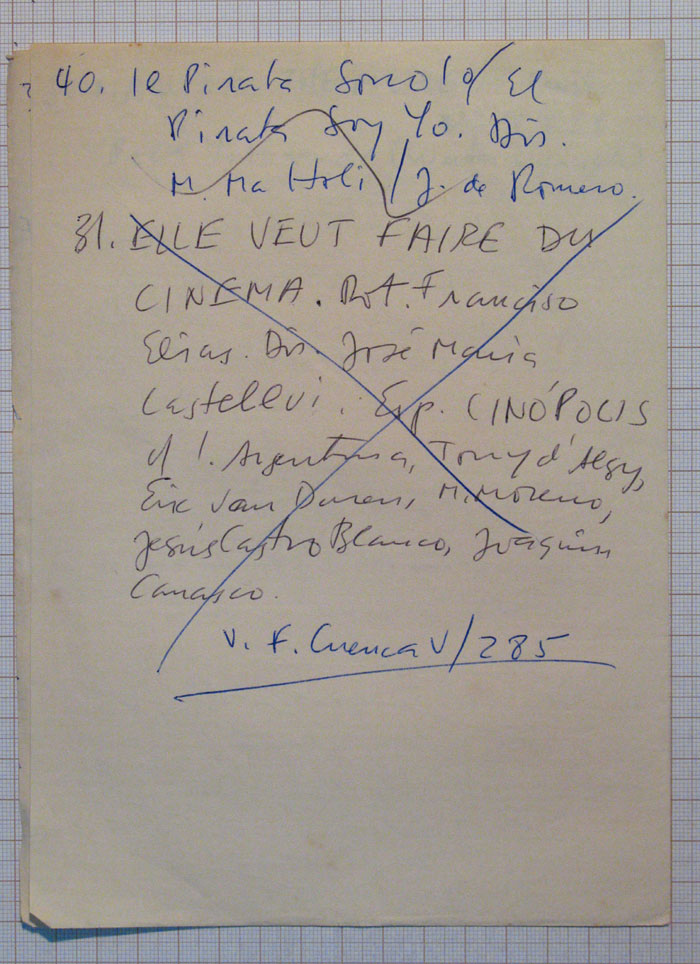 40. Il Pirata Sono Io/El
Pirata Soy Yo. Dis.
M. Mattoli/J. de Romero.
31. ELLE VEUT FAIRE DU
CINEMA. Rot. Francisco
Elías. Dis. José María
Castellvi. Esp. CINÓPOLIS
Argentina, Tony d'Algy,
Eric Van Duren, M. Moreno,
Jesús Castro Blanco, Joaquín
Carrasco.
V. F. Cuenca V/285